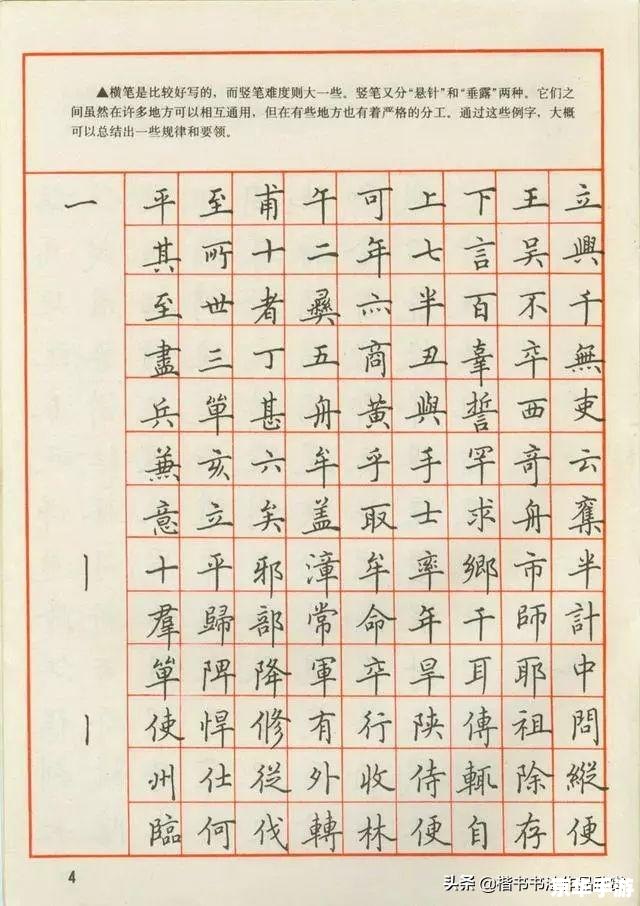 ▲横笔是比较好写的，而竖笔难度则大一些。竖笔又分“悬针”和“垂露”两种。它们之
间虽然在许多地方可以相互通用，但在有些地方也有着严格的分工。通过这些例字，大概
可以总结出一些规律和要领。
一 平 至 甫 午 可 上 下 王 立
其 所 十 二 年 七 言 吴 興
至 世 者 彝 亦 半 百 不 千
盡 三 丁 五 商 丑 辜 卒 無
兵 單 甚 舟 黄 與 誓 西 吏
兼 亥 六 牟 乎 手 罕 奇 云
意 立 矣 盖 取 士 求 舟 奪
丨 十 平 邪 漳 牟 率 鄉 市 半
羣 歸 部 常 命 年 干 師 計
單 陴 降 軍 卒 旱 耳 耶 中
丨 使 悍 修 有 行 陕 傳 祖 問
州 仕 從 外 收 侍 輒 除 縱
臨 何 伐 轉 林 便 自 存 便
4
头条 @楷书书法